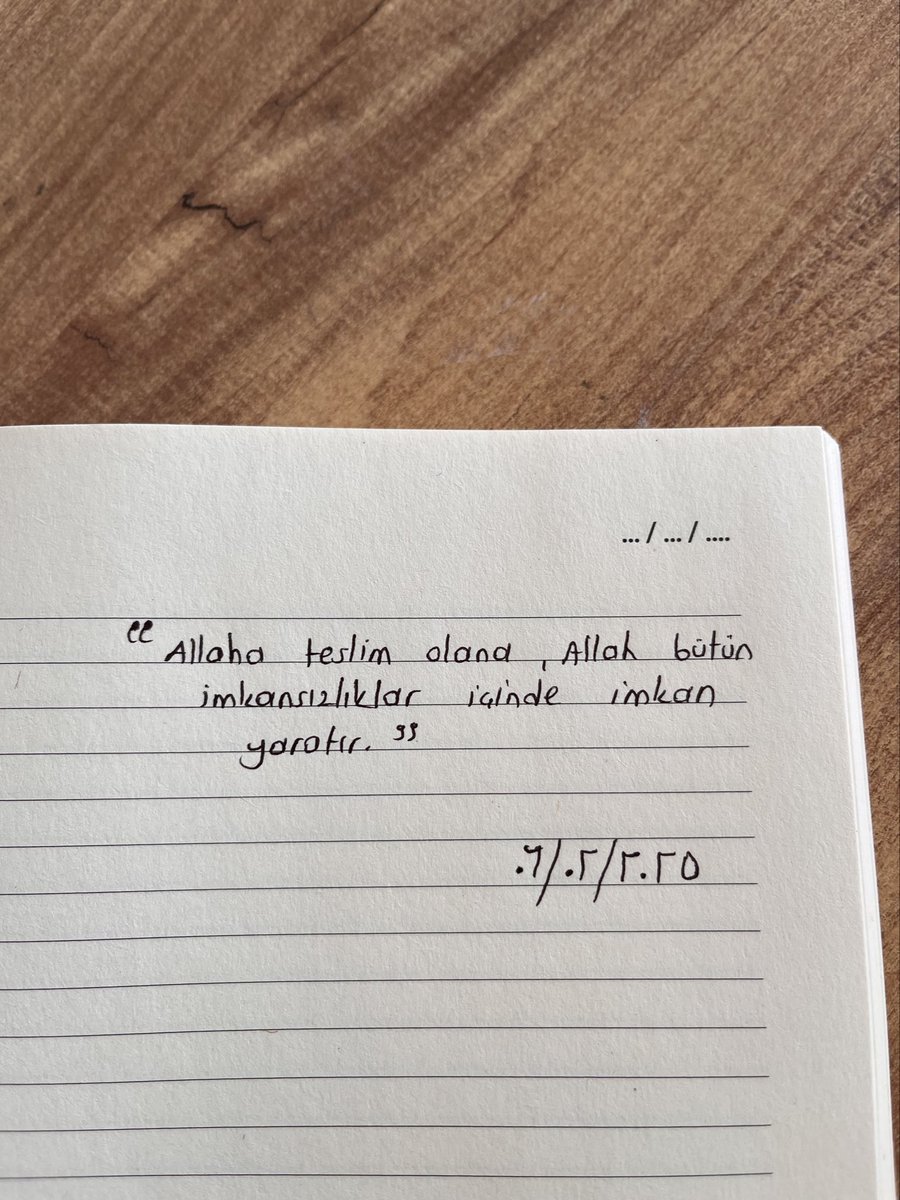 ... / ... / ....
“Allaha teslim olana, Allah bütün
imkansızlıklar içinde imkan
yaratır.”
٠٦/٠٢/٢٠٢٥